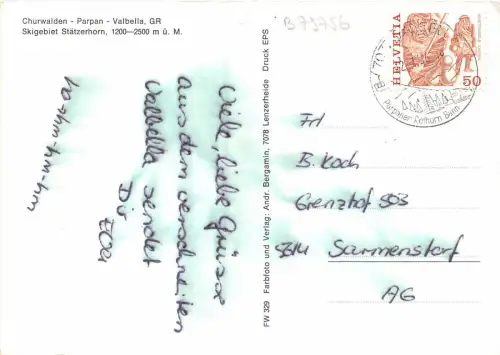 Churwalden - Parpan - Valbella, GR
Skigebiet Stätzerhorn, 1200–2500 m ü. M.
B79756
Viele, liebe Grüsse
aus dem verschneiten
Valbella sendet
Dir
FW 329 Farbfoto und Verlag: Andr. Bergamin, 7078 Lenzerheide Druck EPS
HELVETIA
50
Parpaner Rothorn Bahn
Frl
B. Koch
Grenzhof 503
5614 Sarmenstorf
AG